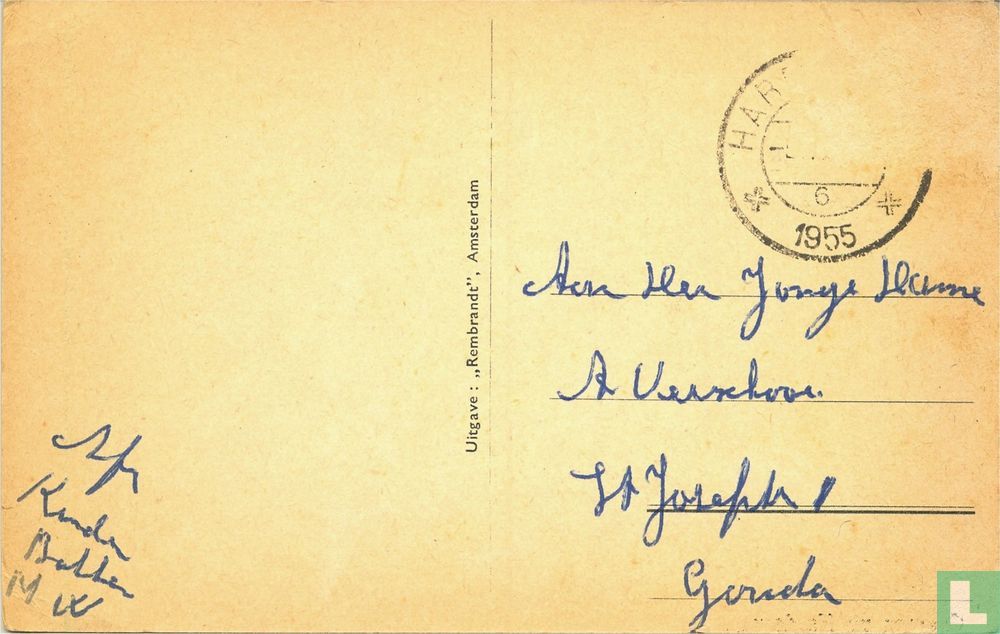 Afz
Bakker
Uitgave: „Rembrandt", Amsterdam
HAR
6
1955
Aan Den Jonge Dame
A Verschoor
St Joseph
Gouda
L